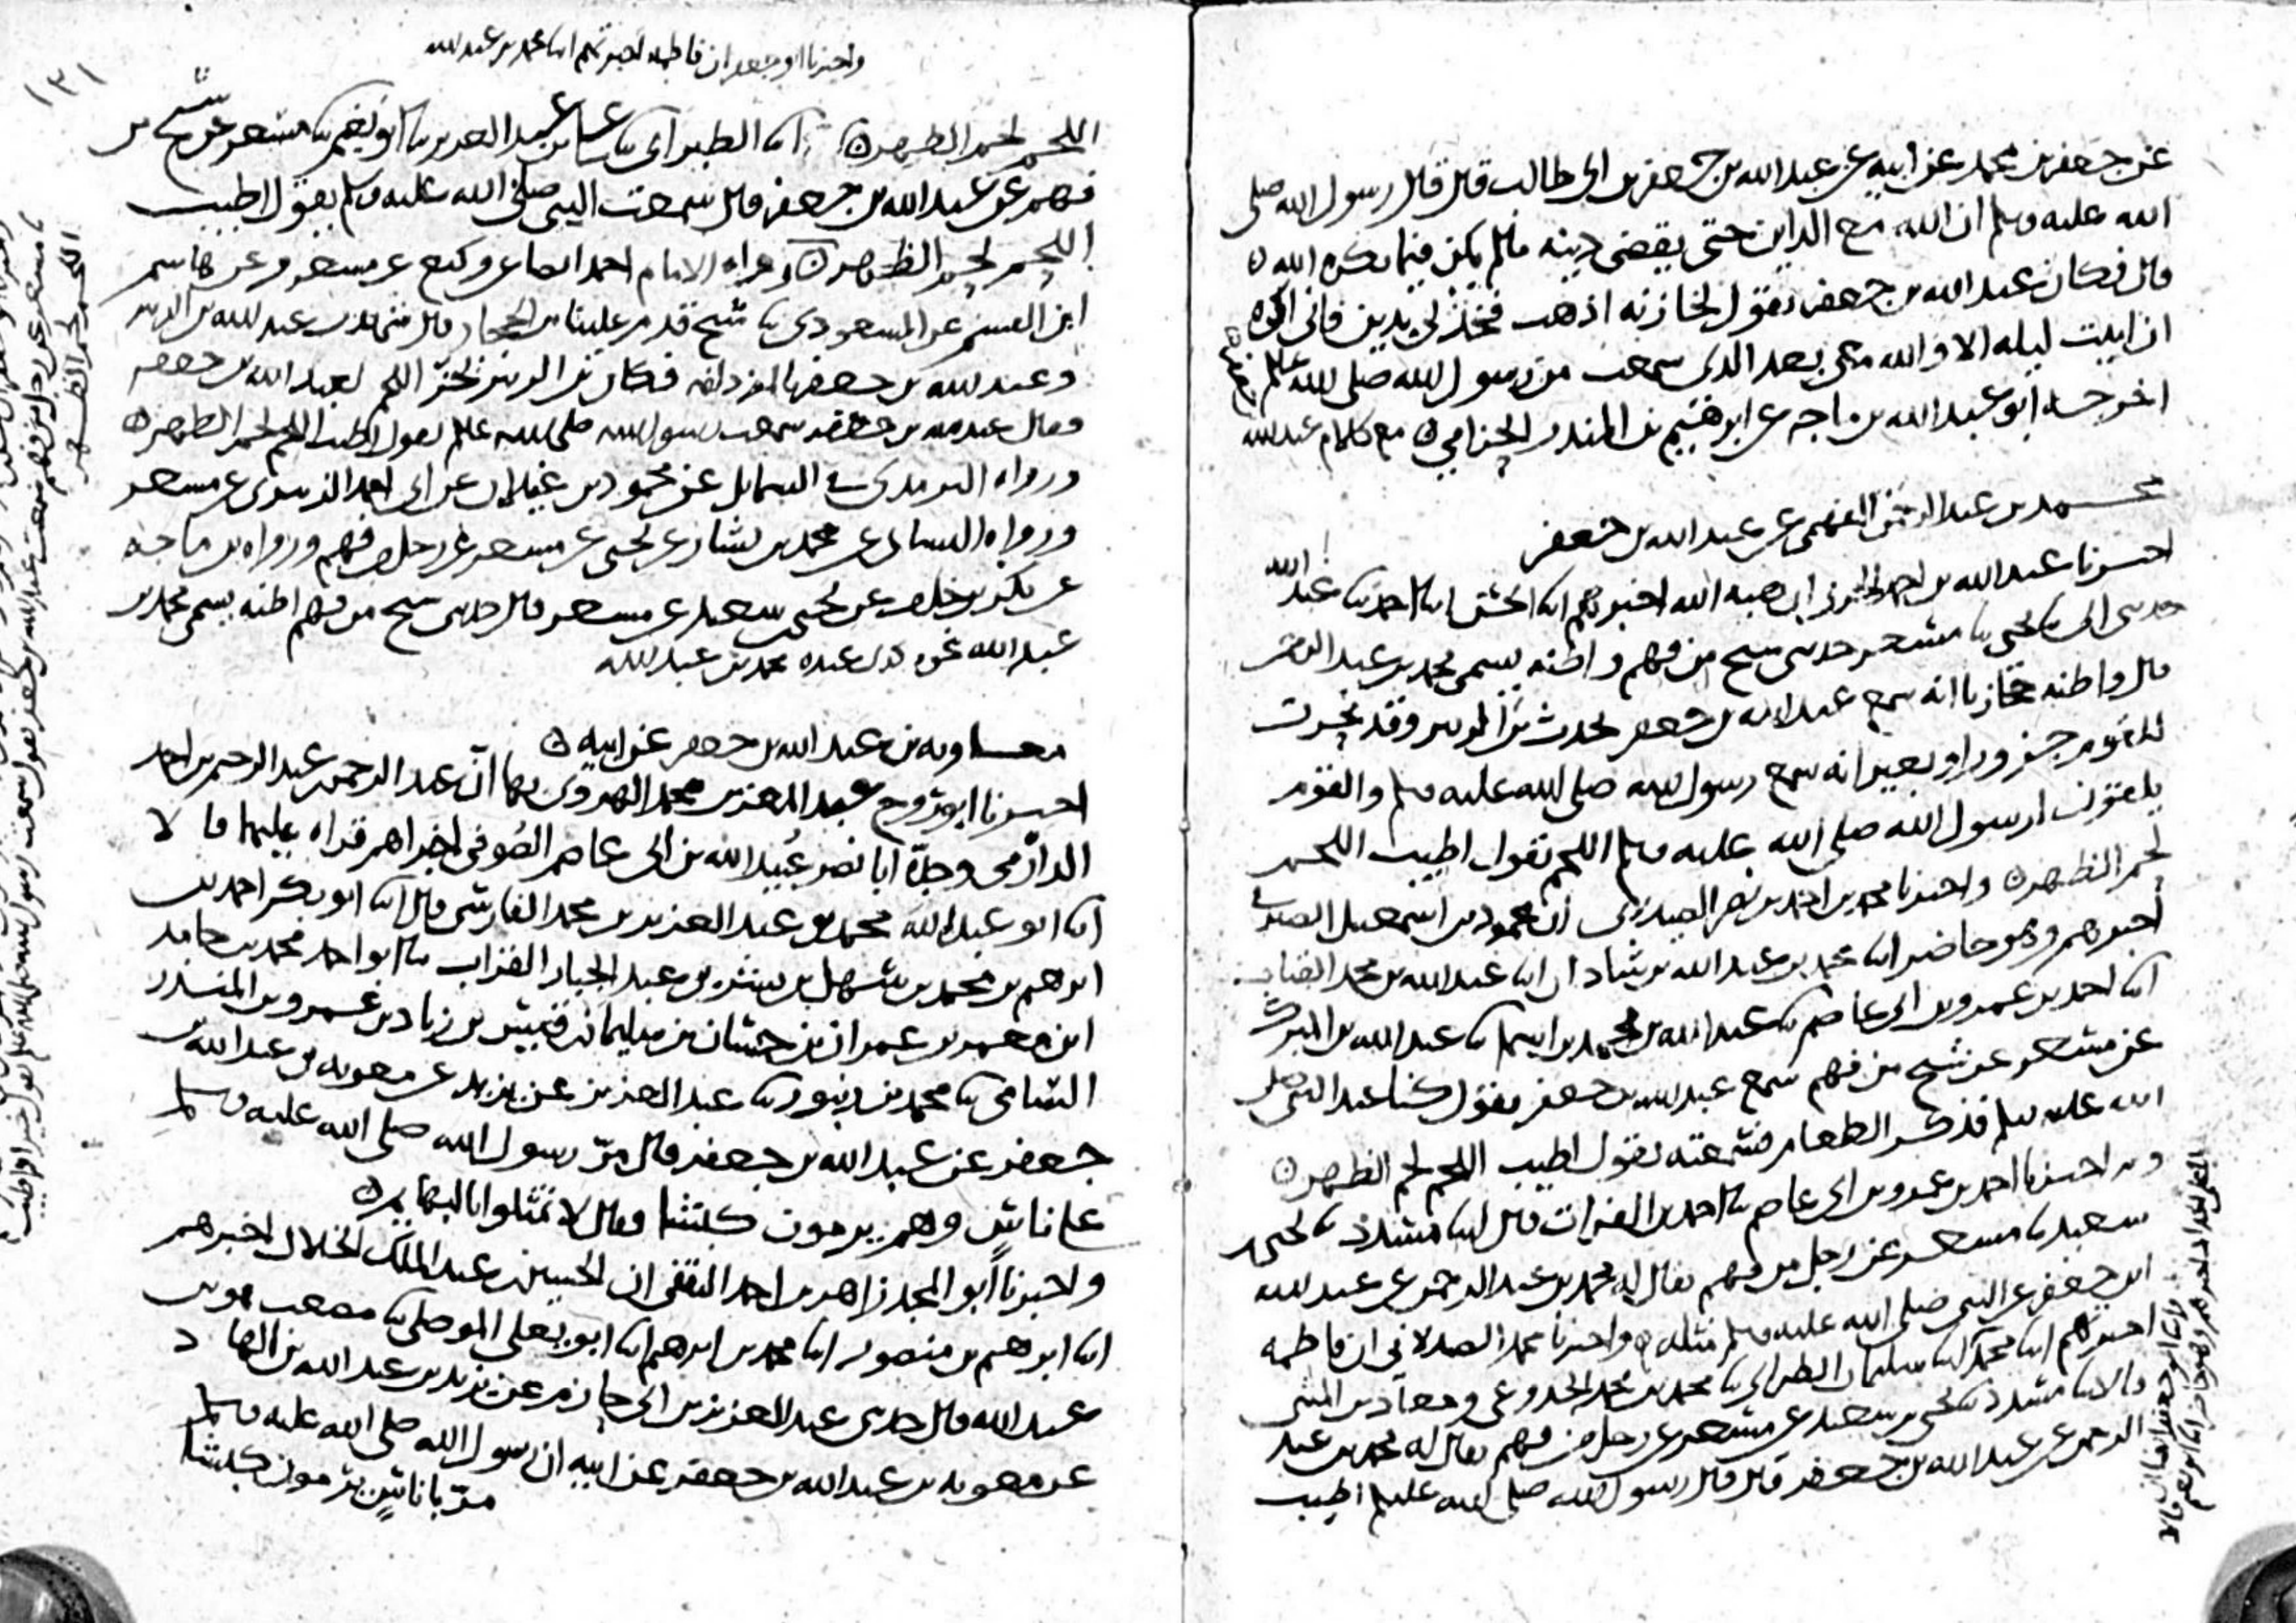 عن جعفر بن محمد عن ابيه عن عبد الله بن جعفر بن ابي طالب قال قال رسول الله صلى
الله عليه وسلم ان الله مع الداين حتى يقضي دينه مالم يكن فيما يكره الله
قال فكان عبد الله بن جعفر يقول لخازنه اذهب فخذ لي بدين فاني اكره
ان ابيت ليله الا والله معي بعد الذي سمعت من رسول الله صلى الله عليه وسلم
اخرجه ابو عبد الله بن ماجه عن ابرهيم بن المنذر الحزامي
محمد بن عبد الرحمن الفهمي عن عبد الله بن جعفر
اخبرنا عبد الله بن احمد الحربي ان هبه الله اخبرهم ابنا الحسن ابنا احمد ثنا عبد الله
حدثني ابي ثنا يحيى ثنا مسعر حدثني شيخ من فهم واظنه يسمى محمد بن عبد الرحمن
قال واظنه حجازيا انه سمع عبد الله بن جعفر يحدث بن الزبير وقد نحرت
للقوم جزور او بعير انه سمع رسول الله صلى الله عليه وسلم والقوم
يلقون لرسول الله صلى الله عليه وسلم اللحم يقول اطيب اللحم
لحم الظهر واخبرنا محمد بن احمد بن نصر الصيدلاني ان محمود بن اسمعيل الصيرفي
اخبرهم وهو حاضر ابنا محمد بن عبد الله بن شاذان ابنا عبد الله بن محمد القباب
ابنا احمد بن عمرو بن ابي عاصم ثنا عبد الله بن محمد بن اسما ثنا عبد الله بن المبرك
عن مسعر عن شيخ من فهم سمع عبد الله بن جعفر يقول كنا عند النبي صلى
الله عليه وسلم فذكر الطعام فسمعته يقول اطيب اللحم لحم الظهر
وبه اخبرنا احمد بن عمرو بن ابي عاصم ثنا احمد بن الفرات قال ابنا مسدد ثنا يحيى بن
سعيد ثنا مسعر عن رجل من فهم يقال له محمد بن عبد الرحمن عن عبد الله
ابن جعفر عن النبي صلى الله عليه وسلم مثله واخبرنا محمد الصيدلاني ان فاطمه
اخبرتهم ابنا محمد ابنا سليمان الطبراني ثنا محمد بن محمد الجذوعي ومعاذ بن المثنى
قالا ثنا مسدد ثنا يحيى بن سعيد عن مسعر عن رجل من فهم يقال له محمد بن عبد
الرحمن عن عبد الله بن جعفر قال قال رسول الله صلى الله عليه وسلم اطيب
١٣١
واخبرنا ابو جعفر ان فاطمه اخبرتهم ابنا محمد بن عبد الله
اللحم لحم الظهر ابنا الطبراني ثنا علي بن عبد العزيز ثنا ابو نعيم ثنا مسعر عن شيخ من
فهم عن عبد الله بن جعفر قال سمعت النبي صلى الله عليه وسلم يقول اطيب
اللحم لحم الظهر رواه الامام احمد ايضا عن وكيع عن مسعر وعن هاشم
ابن القسم عن المسعودي ثنا شيخ قدم علينا من الحجاز قال شهدت عبد الله بن الزبير
وعبد الله بن جعفر بالمزدلفه فكان بن الزبير يحز اللحم لعبد الله بن جعفر
فقال عبد الله بن جعفر سمعت رسول الله صلى الله عليه وسلم يقول اطيب اللحم لحم الظهر
ورواه الترمذي في الشمايل عن محمود بن غيلان عن ابي احمد الزبيري عن مسعر
ورواه النساى عن محمد بن بشار عن يحيى عن مسعر عن رجل من فهم ورواه بن ماجه
عن بكر بن خلف عن يحيى بن سعيد عن مسعر قال حدثني شيخ من فهم اظنه يسمى محمد بن
عبد الله نحوه كذى عنده محمد بن عبد الله
معاويه بن عبد الله بن جعفر عن ابيه
اخبرنا ابو روح عبد المعز بن محمد الهروي بها ان عبد الرحمن بن عبد الرحيم بن احمد
الدارمي وجده ابا نصر عبيد الله بن ابي عاصم الصوفي اخبراهم قراه عليهما قالا
ابنا ابو عبد الله محمد بن عبد العزيز بن محمد الفارسي قال ابنا ابو بكر احمد بن
ابرهيم بن محمد بن سهل بن بشر بن عبد الجبار القراب ثنا ابو احمد محمد بن حامد
ابن معمر بن عمران بن حسان بن سليمان بن قيس بن زياد بن عمرو بن المنذر
الشامي ثنا محمد بن زنبور ثنا عبد العزيز عن يزيد عن معويه بن عبد الله بن
جعفر عن عبد الله بن جعفر قال مر رسول الله صلى الله عليه وسلم
على ناس وهم يرمون كبشا فقال لا تمثلوا بالبهايم
واخبرنا ابو المجد زاهر بن احمد الثقفي ان الحسين بن عبد الملك الخلال اخبرهم
ابنا ابرهيم بن منصور ابنا محمد بن ابرهيم ابنا ابو يعلى الموصلي ثنا مصعب هو بن
عبد الله قال حدثني عبد العزيز بن ابي حازم عن يزيد بن عبد الله بن الهاد
عن معويه بن عبد الله بن جعفر عن ابيه ان رسول الله صلى الله عليه وسلم
مر باناس يرمون كبشا